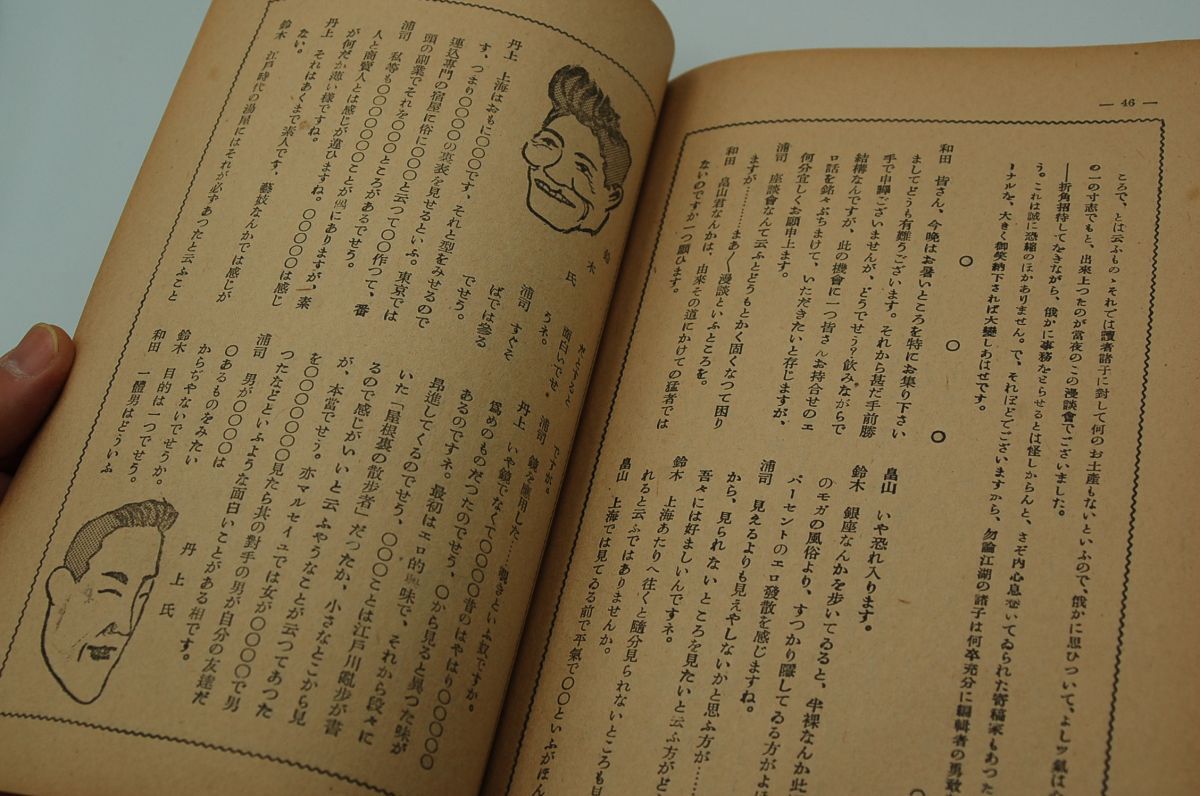 — 46 —
ころで、とは云ふものゝそれでは讀者諸子に對して何のお土産もないといふので、俄かに思ひついて、よしッ氣は
の一の寸志でもと、出來上つたのが當夜のこの漫談會でございました。
――折角招待してをきながら、俄かに事務をとらせるとは怪しからんと、さぞ内心息巻いてゐられた寄稿家もあつた
う。これは誠に恐縮のほかありません。で、それほどでございますから、勿論江湖の諸子は何卒充分に編輯者の勇敢
ーナルを、大きく御笑納下されば大變しあはせです。
○ ○ ○
和田 皆さん、今晩はお暑いところを特にお集り下さい
ましてどうも有難うございます。それから甚だ手前勝
手で申譯ございませんが、どうでせう？飲みながらで
結構なんですが、此の機會に一つ皆さんお持合せのエ
ロ話を銘々ぶちまけて、いただきたいと存じますが、
何分宜しくお願申上ます。
浦司 座談會なんて云ふとどうもとかく固くなつて困り
ますが………まあ〳〵漫談といふところを。
和田 畠山君なんかは、由來その道にかけての猛者では
ないのですか一つ願ひます。
畠山 いや恐れ入ります。
鈴木 銀座なんかを歩いてゐると、半裸なんか此
のモガの風俗より、すつかり隱してゐる方がよほ
パーセントのエロ發散を感じますね。
浦司 見えるよりも見えやしないかと思ふ方が……
から、見られないところを見たいと云ふ方がど
吾々には好ましいんですネ。
鈴木 上海あたりへ往くと隨分見られないところも見
れると云ふではありませんか。
畠山 上海では見てる前で平氣で〇〇といふがほん
丹上 上海はおもに〇〇〇です、それと型をみせるので
す、つまり〇〇〇〇の裏表を見せるといふ。東京では
連込專門の宿屋に俗に〇〇〇と云つて〇〇作つて、番
頭の副業でそれを〇〇〇ところがあるでせう。
浦司 私等も〇〇〇〇〇〇ことが偶にありますが、素
人と商賣人とは感じが違ひますね。〇〇〇〇〇は感じ
が何だか薄い樣ですね。
丹上 それはあくまで素人です、藝妓なんかでは感じが
ない。
鈴木 江戸時代の湯屋にはそれが必ずあつたと云ふこと
鈴木氏
だとすると
面白いでせ
うネ。
浦司 すぐそ
ばでは參る
でせう。
ですが。
浦司 鏡を應用した……覗きといふ奴ですか。
丹上 いや鏡でなくて〇〇〇〇昔のはやはり〇〇〇〇〇
爲めのものだつたのでせう、〇から見ると異つた味が
あるのですネ。最初はエロ的興味で、それから段々に
昂進してくるのでせう、〇〇〇ことは江戸川亂歩が書
いた「屋根裏の散歩者」だつたか、小さなとこから見
るので感じがいいと云ふやうなことが云つてあつた
が、本當でせう。亦マルセイユでは女が〇〇〇〇で男
を〇〇〇〇〇〇〇見たら其の對手の男が自分の友達だ
つたなどといふような面白いことがある相です。
浦司 男が〇〇〇〇〇は
〇あるものをみたい
からぢやないでせうか。
鈴木 目的は一つでせう。
和田 一體男はどういふ
丹上氏